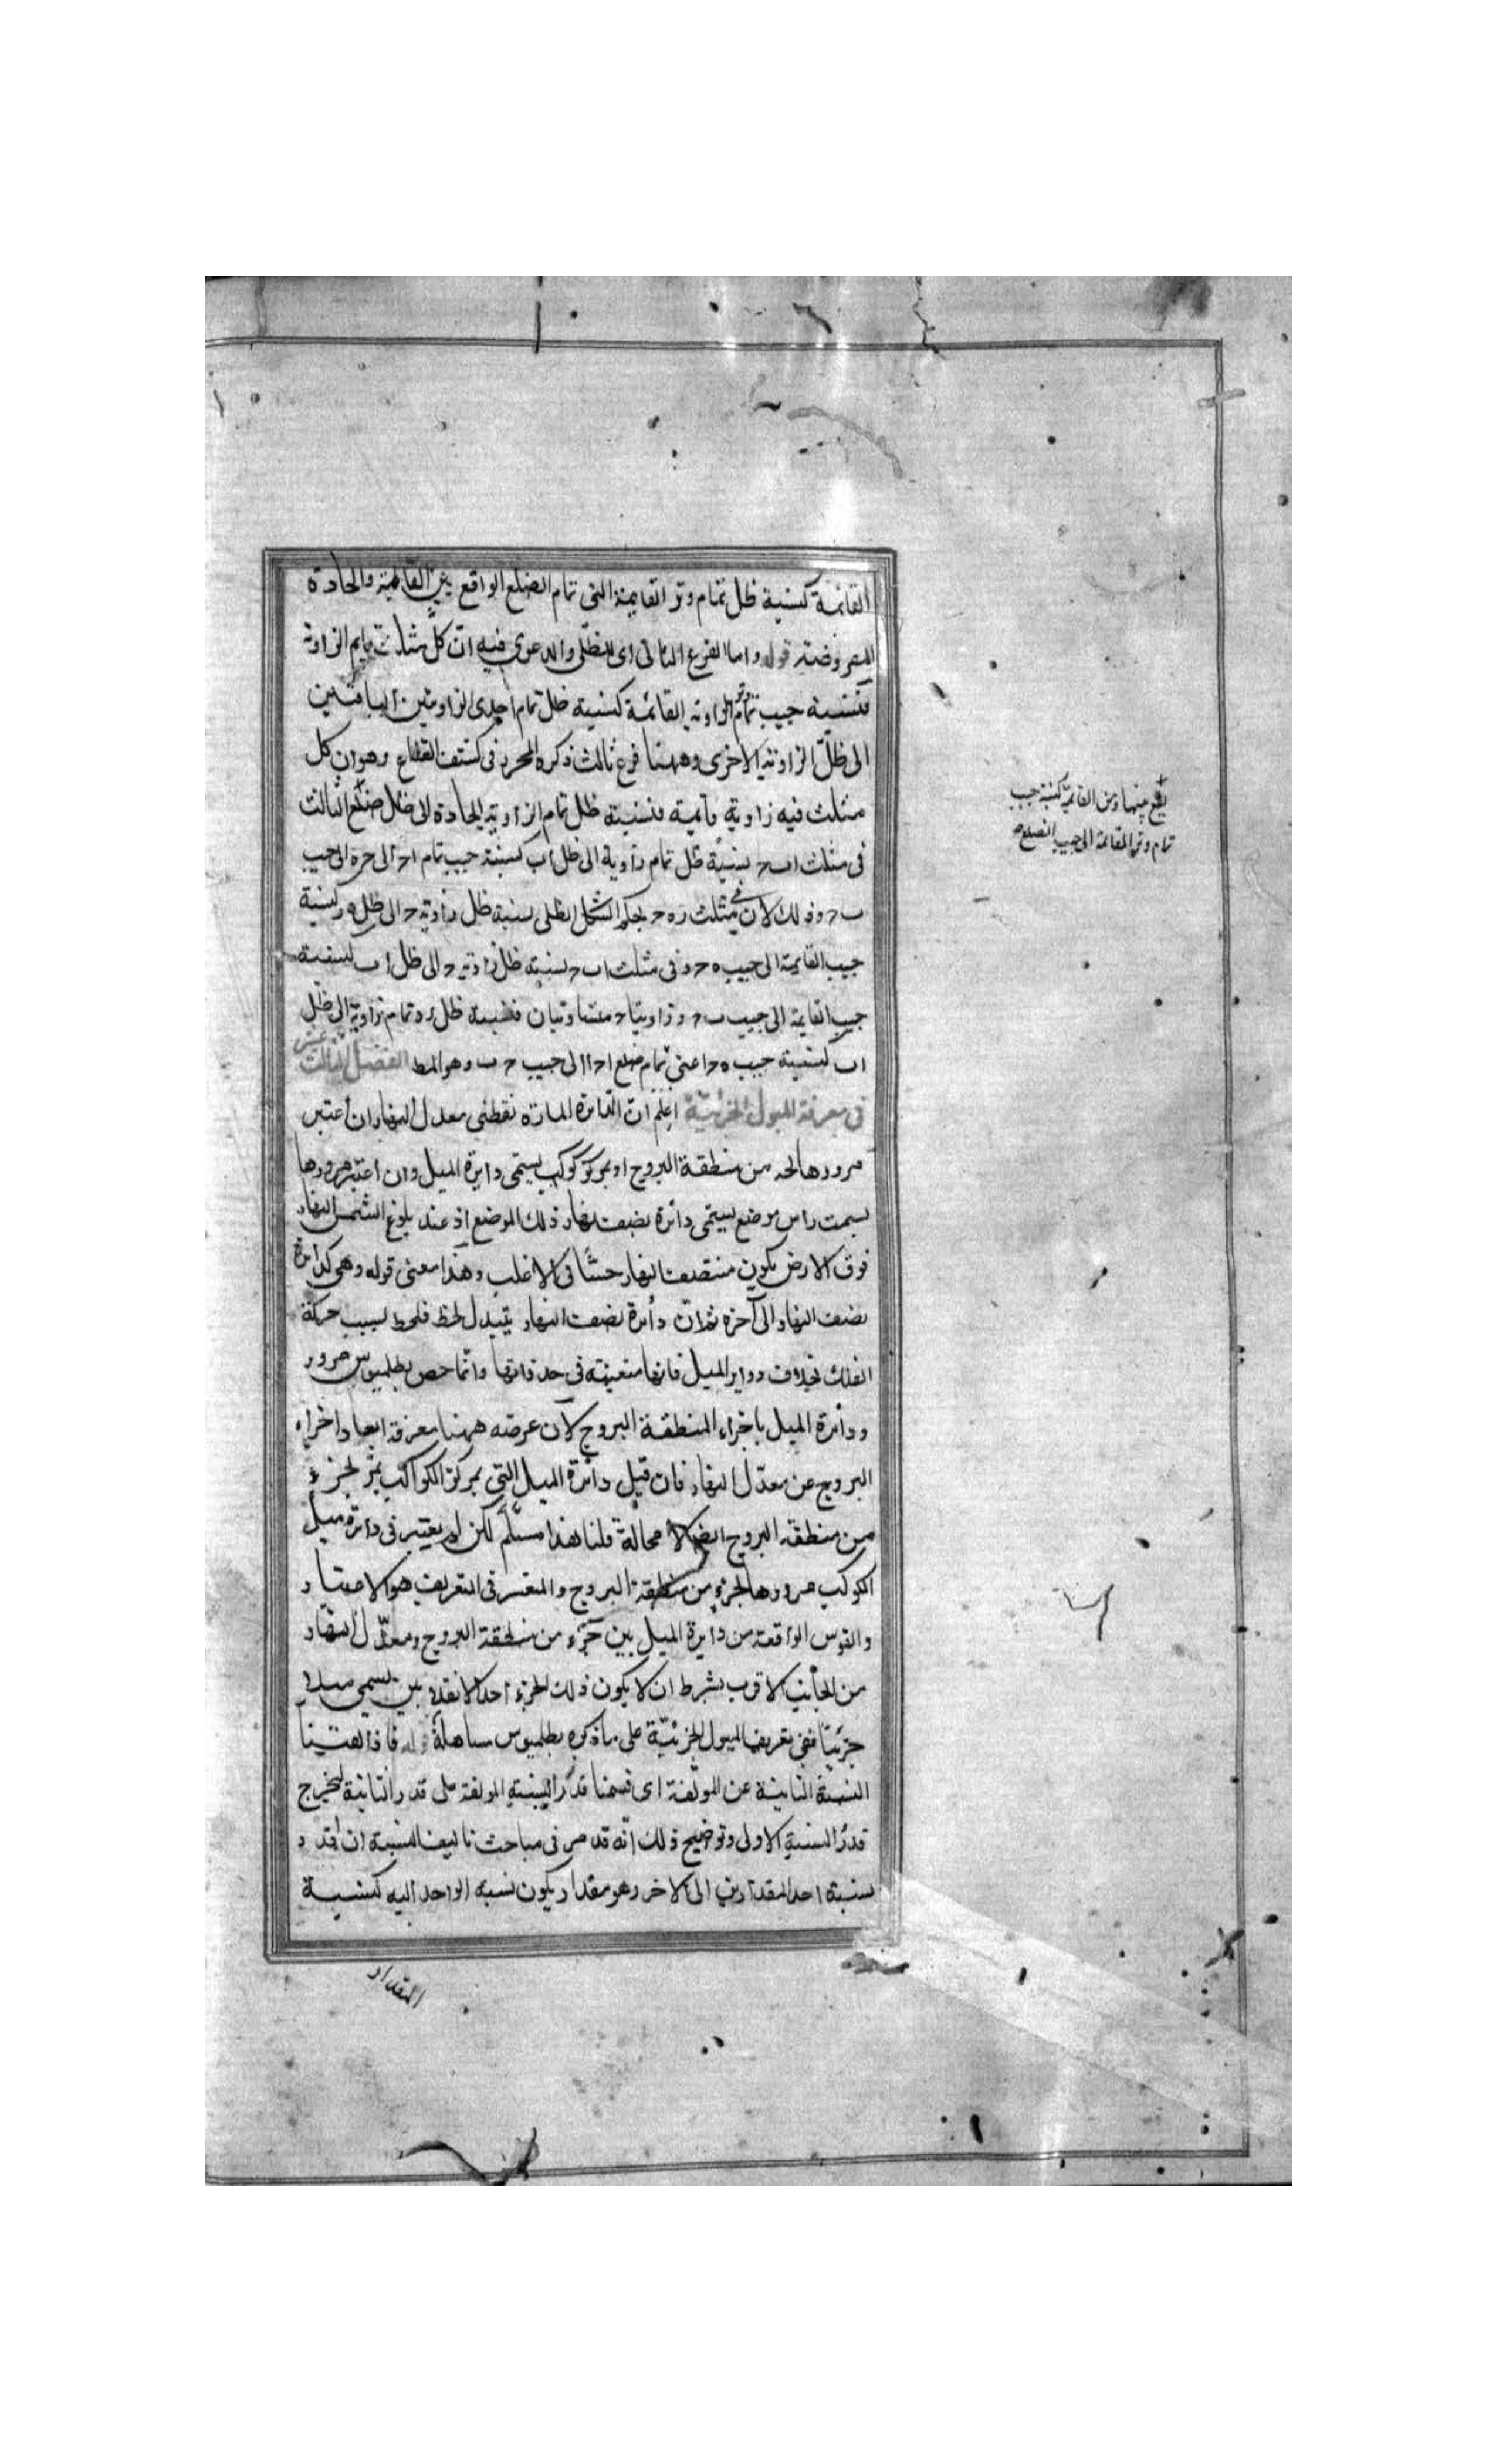 القائمة كنسبة ظل تمام وتر القايمة التى تمام الضلع الواقع بين القائمة والحادة
المفروضة قوله واما الفرع الثانى اى للظلى والدعوى فيه ان كل مثلث قايم الزاوية
فنسبة جيب تمام وتر الزاوية القائمة كنسبة ظل تمام احدى الزاويتين الباقيتين
الى ظل الزاوية الاخرى وههنا فرع ثالث ذكره المحرر فى كشف القناع وهو ان كل
مثلث فيه زاوية قائمة فنسبة ظل تمام الزاوية الحادة الى ظل ضلع الثالث
فى مثلث اب ح نسبة ظل تمام زاوية الى ظل اب كنسبة جيب تمام اح الى جيب
ب ح وذلك لان فى مثلث ره ح بحكم الشكل الظلى نسبة ظل زاوية ح الى ظل ه ر كنسبة
جيب القايمة الى جيب ه ح وفى مثلث اب ح نسبة ظل زاوية ح الى ظل اب كنسبة
جيب القايمة الى جيب ب ح وزاويتا ح متساويتان فنسبة ظل ره تمام زاوية الى ظل
اب كنسبة جيب ه ح اعنى تمام ضلع اح الى جيب ح ب وهو المط الفصل الثالث عشر
فى معرفة الميول الجزئية اعلم ان الدائرة المارة نقطتى معدل النهار ان اعتبر
مرورها لجزء من منطقة البروج او بمركز كوكب يسمى دايرة الميل وان اعتبر مرورها
بسمت راس موضع يسمى دائرة نصف نهار ذلك الموضع اذ عند بلوغ الشمس اليها
فوق الارض يكون منتصف النهار حسا فى الاغلب وهذا معنى قوله وهى كدائرة
نصف النهار الى آخره ثم ان دائرة نصف النهار يتبدل لحظ فلحظ بسبب حركة
الفلك بخلاف دواير الميل فانها متعينة فى حد ذاتها وانما خص بطلميوس مرور
ودائرة الميل باجزاء المنطقة البروج لان غرضه ههنا معرفة ابعاد اجزاء
البروج عن معدل النهار فان قيل دائرة الميل التى بمركز الكواكب يمر لجزء
من منطقة البروج ايضا لا محالة قلنا هذا مسلم لكن لم يعتبر فى دائرة ميل
الكوكب مرورها لجزء من منطقة البروج والمعتبر فى التعريف هو الاعتبار
والقوس الواقعة من دايرة الميل بين جزء من منطقة البروج ومعدل النهار
من الجانب الاقرب بشرط ان لا يكون ذلك الجزء احد الانقلابين يسمى ميلا
جزئيا ففى تعريف الميول الجزئية على ما ذكره بطلميوس مساهلة قوله فاذا القينا
النسبة الثانية عن المولفة اى قسمنا قدر النسبة المولفة على قدر الثانية ليخرج
قدر النسبة الاولى وتوضيح ذلك انه قد مر فى مباحث تاليف النسبة ان قدر
نسبة احد المقدارين الى الاخر وهو مقدار يكون نسبة الواحد اليه كنسبة
المقدار
يقع بينها وبين القائمة كنسبة جيب
تمام وتر القائمة الى جيب الضلع